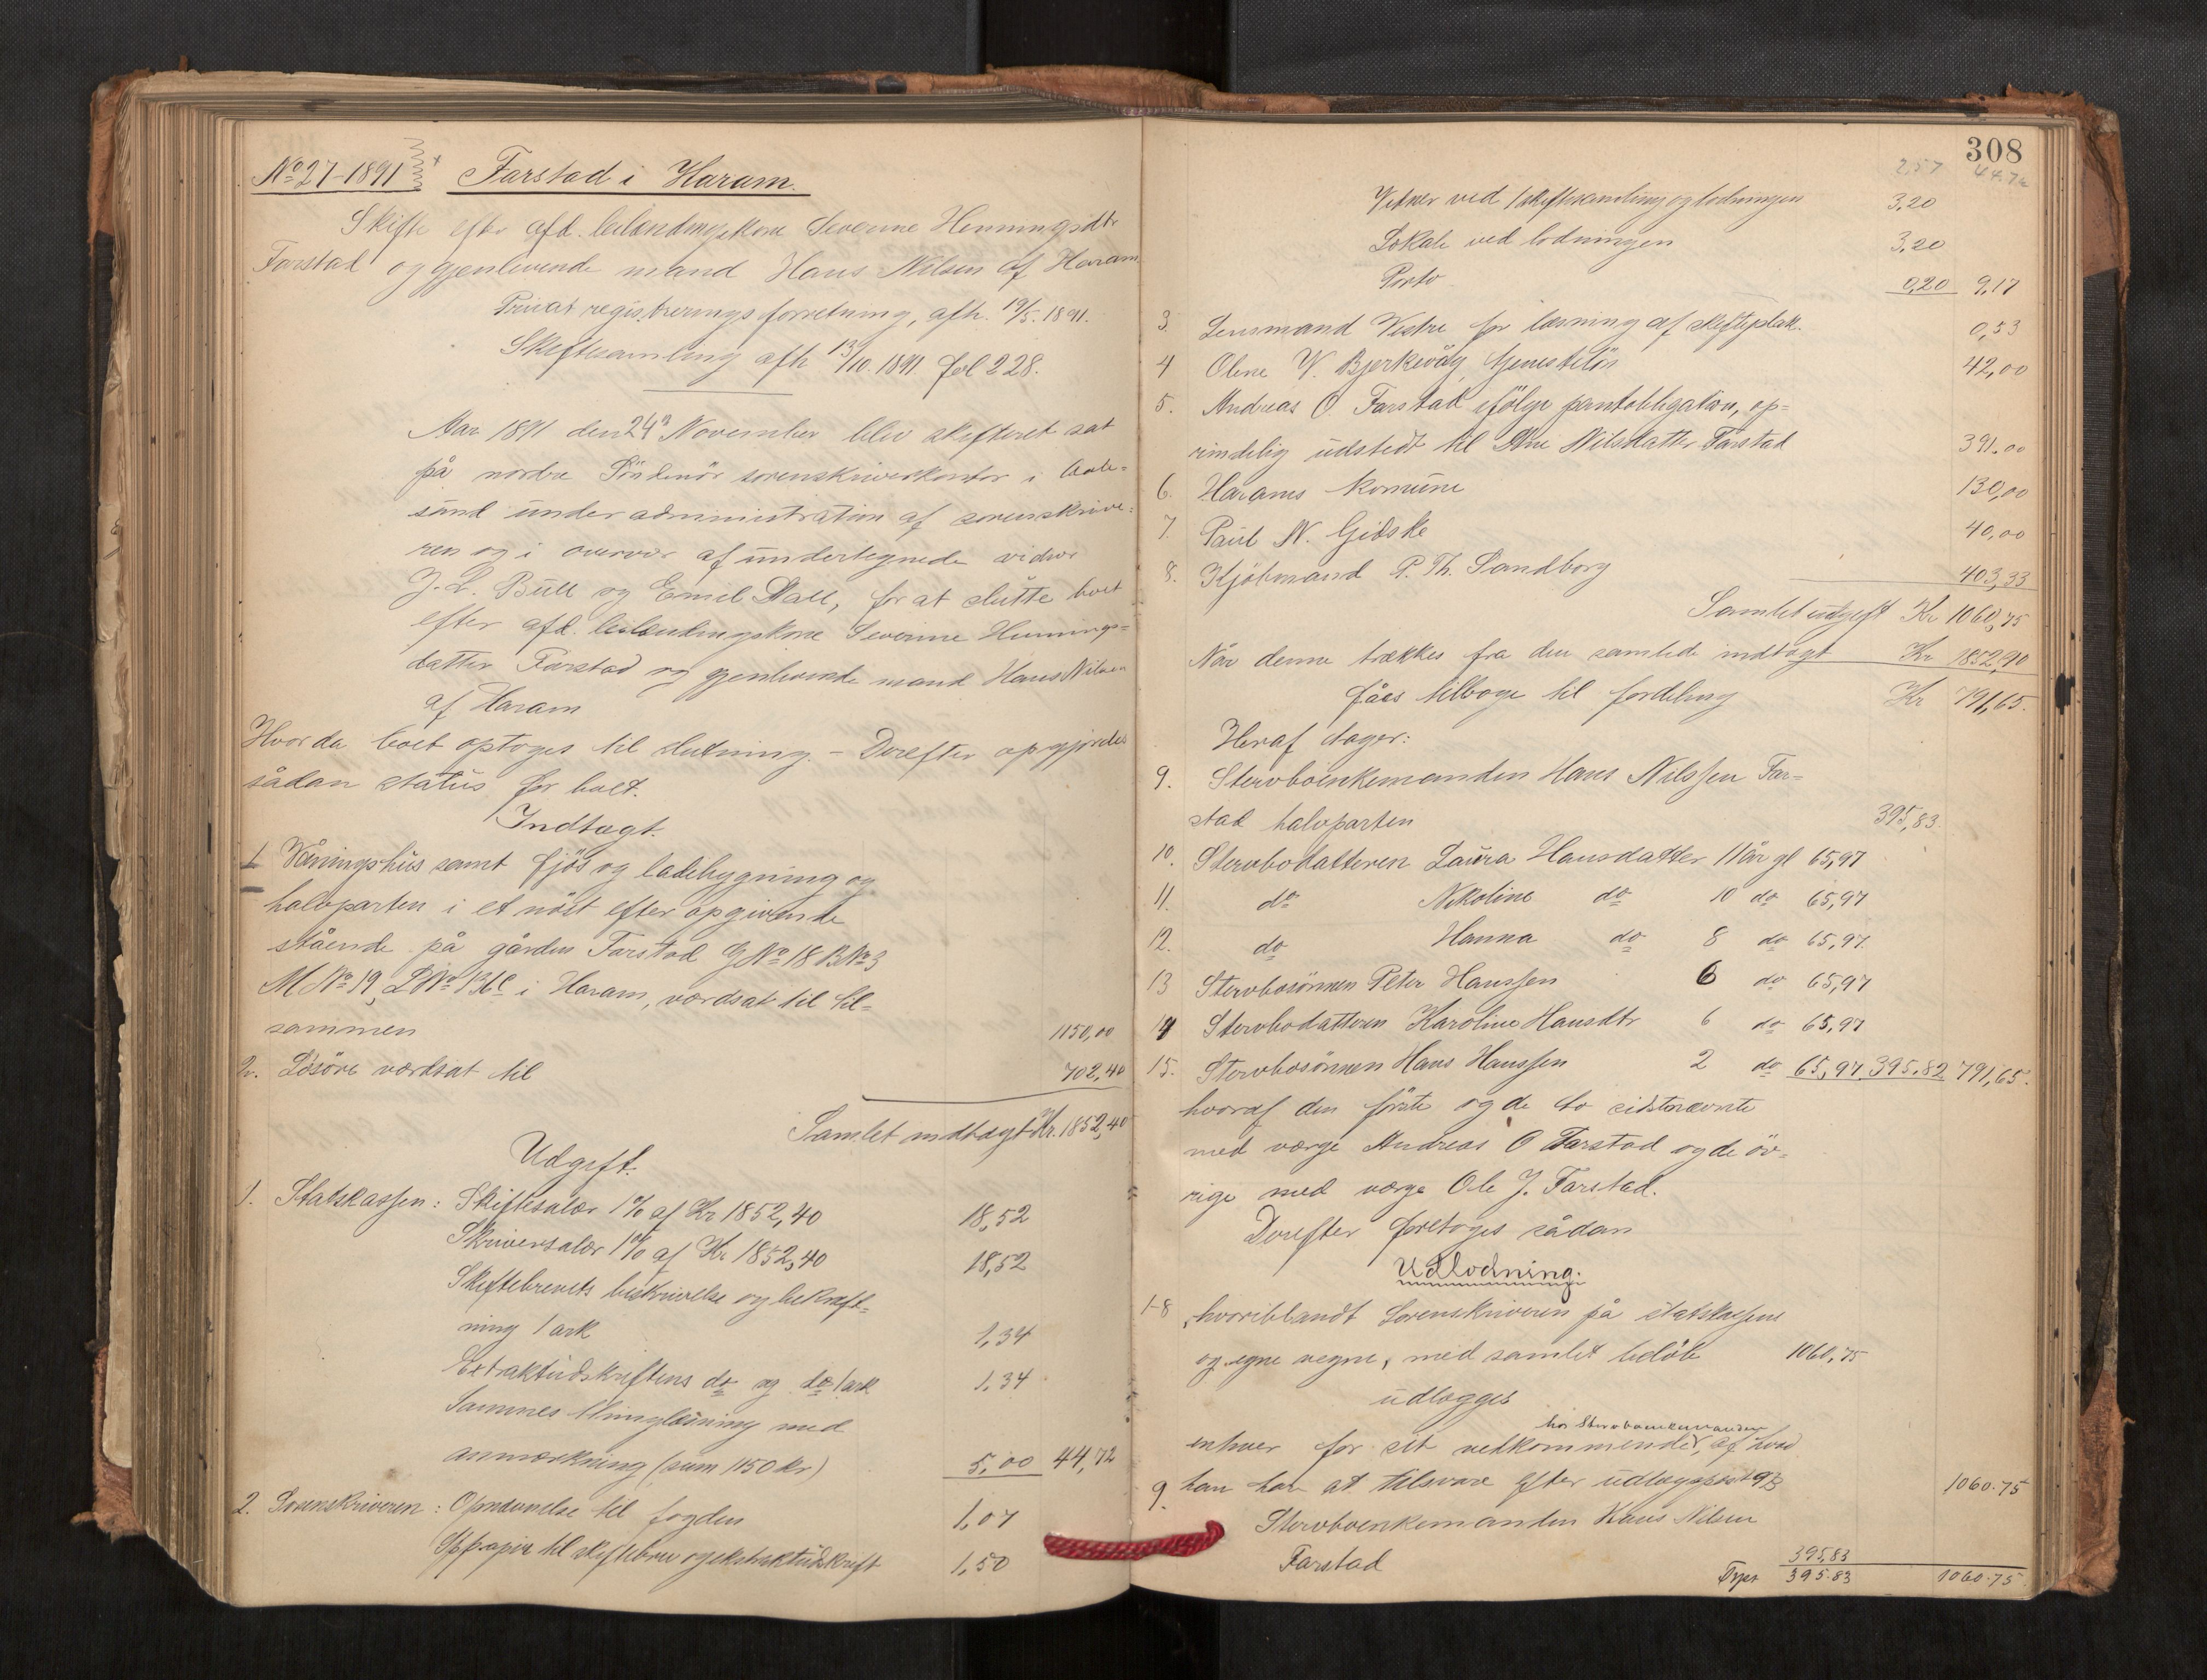 No 27-1891
Farstad i Haram.
Skifte efter afd. leilændingskone Severine Henningsdtr
Farstad og gjenlevende mand Hans Nilsen af Haram
Privat registreringsforretning, afh. 19/5. 1891.
Skiftesamling afh 13/10. 1891 fol 228.
Aar 1891 den 24de November blev skifteret sat
på nordre Söndmör sorenskriverkontor i Aale=
sund under administration af sorenskrive=
ren og i overvær af undertegnede vidner
J. L. Bull og Emil Dall, for at slutte boet
efter afd. leilændingskone Severine Hennings=
datter Farstad og gjenlevende mand Hans Nilsen
af Haram
Hvorda boet optoges til slutning. – Derefter opgjordes
sådan status for boet.
Indtægt.
1 Våningshus samt fjös og ladebygning og
halvparten i et nöst efter opgivende
stående på gården Farstad GNo 18 BNo 3
MNo 19, LNo 136c i Haram, værdsat til til=
sammen 1150,00
2. Lösöre værdsat til 702,40
Samlet indtægt Kr. 1852,40
Udgift.
1. Statskassen: Skiftesalær 1% af Kr 1852,40 18,52
Skriversalær 1% af Kr 1852,40 18,52
Skiftebrevets beskrivelse og bekræft=
ning 1 ark 1,34
Extraktudskriftens do og do 1 ark 1,34
Sammes thinglæsning med
anmærkning (sum 1150 kr) 5,00 44,72
2. Sorenskriveren: Opnævnelse til fogden 1,07
St papir til skiftebrev og ekstraktudskrift 1,50
308
2,57 44.72
Vidner ved 1 skiftesamling og lodningen 3,20
Lokale ved lodningen 3,20
Porto 0,20 9,17
3. Lensmand Vestre for læsning af skifteplak. 0,53
4 Oline V. Bjerkevåg, tjenestelön 42,00
5. Andreas O. Farstad ifölge pantobligation, op=
rindelig udstedt til Ane Nilsdatter Farstad 391.00
6. Harams komune 130,00
7. Paul N. Gidske 40,00
8. Kjöbmand P. Th. Sandborg 403,33
Samlet udgift Kr 1060,75
Når denne trækkes fra den samlede indtægt Kr 1852,40
fåes tilbage til fordeling Kr 791,65.
Heraf tager:
9. Stervboenkemanden Hans Nilssen Far=
stad halvparten 395,83.
10. Stervbodatteren Laura Hansdatter 11 år gl 65,97
11. do Nikoline do 10 do 65,97
12. do Hanna do 8 do 65,97.
13 Stervbosönnen Peter Hanssen 6 do 65,97
14 Stervbodatteren Karoline Hansdtr 6 do 65,97
15. Stervbosönnen Hans Hanssen 2 do 65,97 395,82 791,65.
hvoraf den förste og de to sidstnævnte
med værge Andreas O Farstad og de öv=
rige med værge Ole J. Farstad.
Derefter foretoges sådan
Udlodning.
1-8, hvoriblandt Sorenskriveren på statskassens
og egne vegne, med samlet belöb 1060,75
udlægges
hos Stervboenkemanden
enhver for sit vedkommende, af hvad
han har at tilsvare efter udlægspost 9 1060.75
9. Stervboenkemanden Hans Nilsen
Farstad 395,83
Trspt 395.83 1060.75